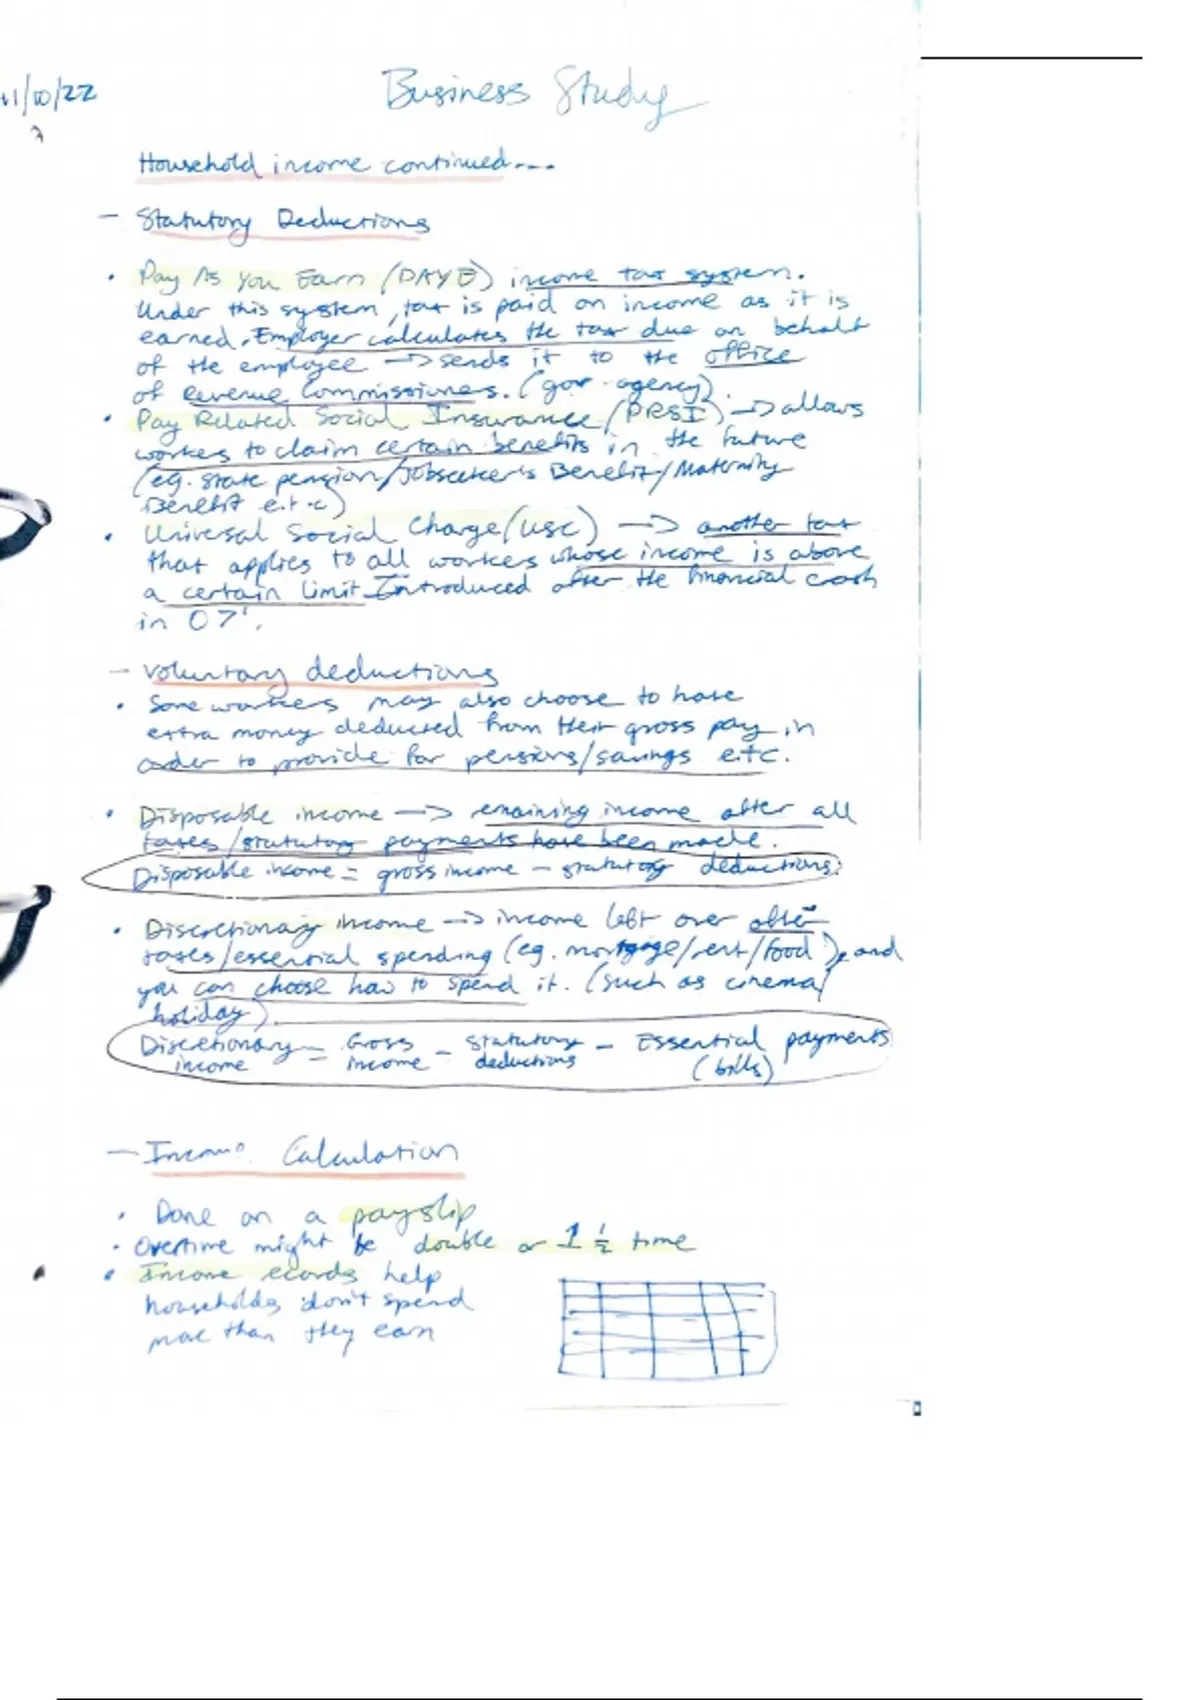 1/10/22
Business Study
Household income continued...
- Statutory Deductions
• Pay As You Earn (PAYE) income tax system.
Under this system, tax is paid on income as it is
earned. Employer calculates the tax due on behalf
of the employee → sends it to the office
of Revenue Commissioners. (gov agency)
• Pay Related Social Insurance (PRSI) → allows
workers to claim certain benefits in the future
(eg. state pension/Jobseeker's Benefit/Maternity
Benefit e.t.c)
• Universal Social Charge (USC) → another tax
that applies to all workers whose income is above
a certain limit. Introduced after the financial crash
in 07'.
- Voluntary deductions
• Some workers may also choose to have
extra money deducted from their gross pay in
order to provide for pensions/savings e.t.c.
• Disposable income → remaining income after all
taxes/statutory payments have been made.
Disposable income = gross income - statutory deductions.
• Discretionary income → income left over after
taxes/essential spending (eg. mortgage/rent/food), and
you can choose how to spend it. (such as cinema/
holiday).
Discretionary income = Gross income - statutory deductions - Essential payments (bills)
- Income Calculation
• Done on a payslip
• Overtime might be double or 1 ½ time
• Income records help
households don't spend
more than they earn